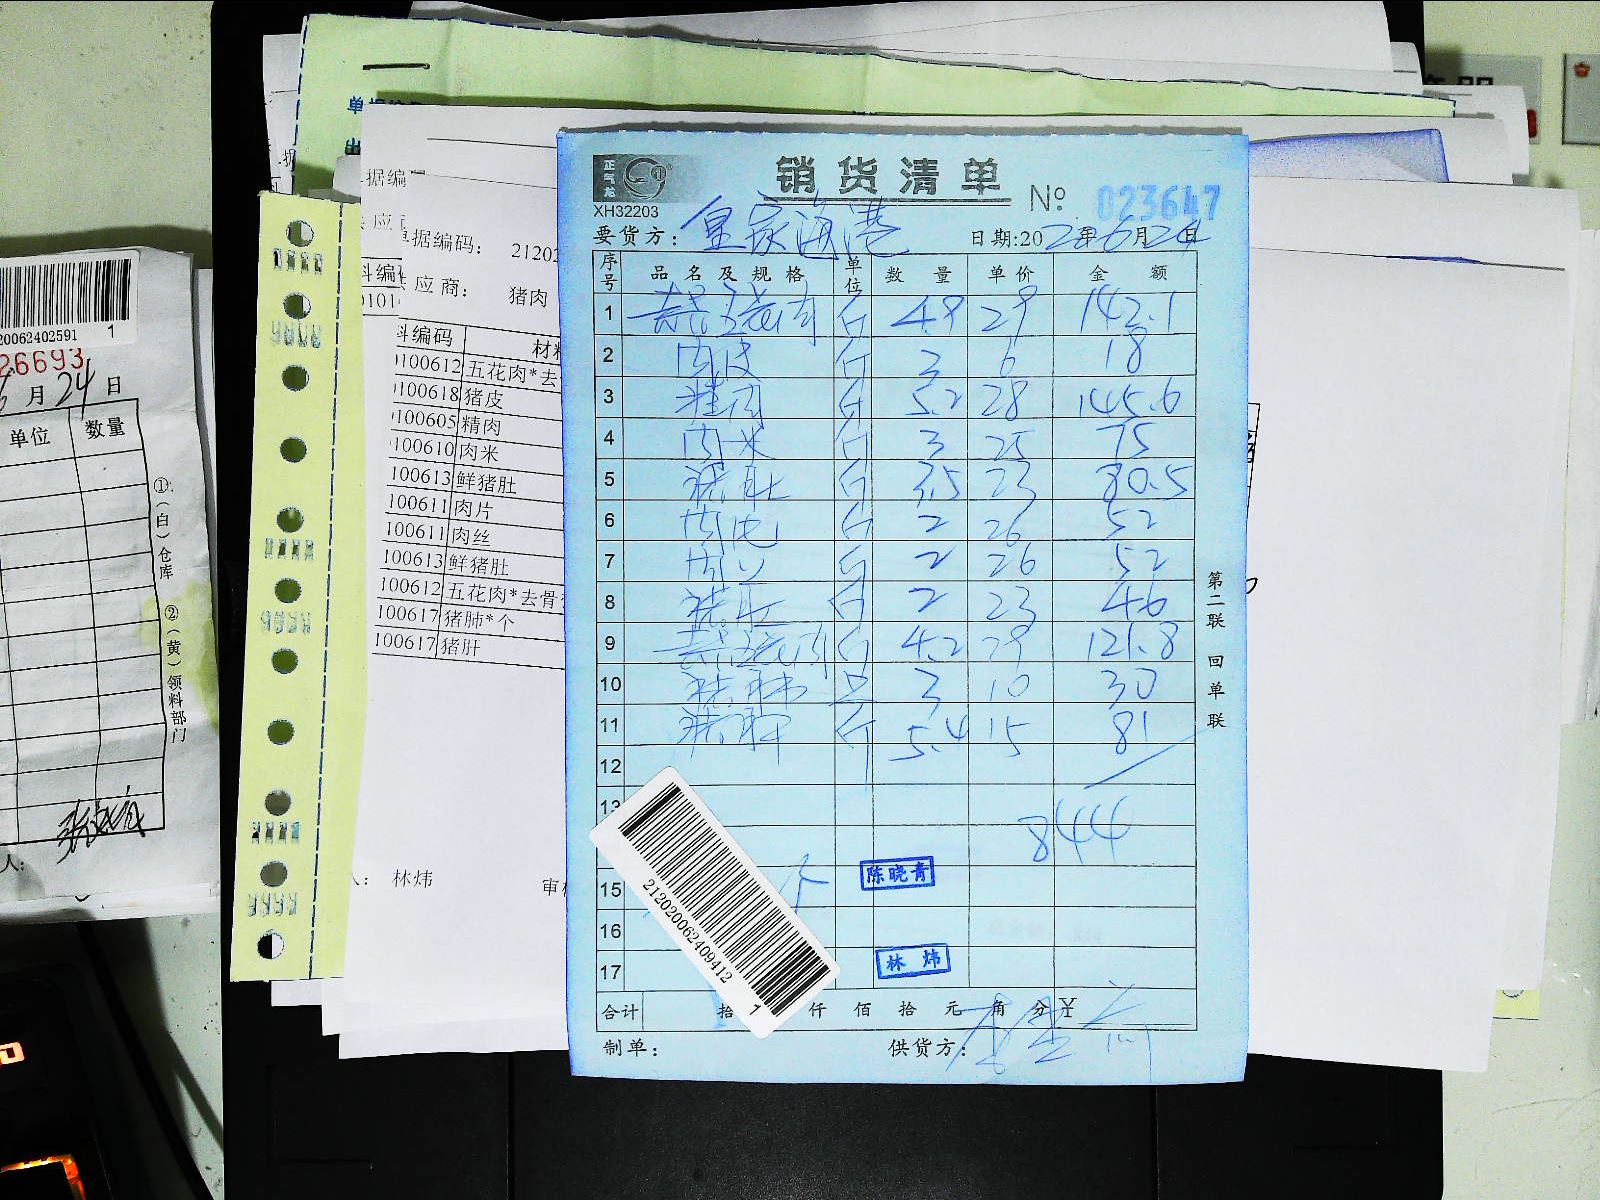 销货清单
正气龙
XH32203
№ 023647
要货方：皇家海港 日期:2020年6月24日
序号 品名及规格 单位 数量 单价 金额
1 去骨五花肉 斤 4.9 29 142.1
2 肉皮 斤 3 6 18
3 精肉 斤 5.2 28 145.6
4 肉米 斤 3 25 75
5 猪肚 斤 3.5 23 80.5
6 肉片 斤 2 26 52
7 肉丝 斤 2 26 52
8 猪肚 斤 2 23 46
9 去骨五花肉 斤 4.2 29 121.8
10 猪肺 只 3 10 30
11 猪肝 斤 5.4 15 81
12
13
844
15 陈晓青
16
17 林炜
合计 拾 仟 佰 拾 元 角 分 ¥
制单： 供货方：
第二联 回单联
21202006240941​2
1
单据编码： 21202
应商： 猪肉
料编码 材料
100612 五花肉*去
100618 猪皮
100605 精肉
100610 肉米
100613 鲜猪肚
100611 肉片
100611 肉丝
100613 鲜猪肚
100612 五花肉*去骨
100617 猪肺*个
100617 猪肝
人： 林炜 审核
据编
应
料编
0101
20062402591 1
26693
月 24 日
单位 数量
①（白）仓库 ②（黄）领料部门
人：